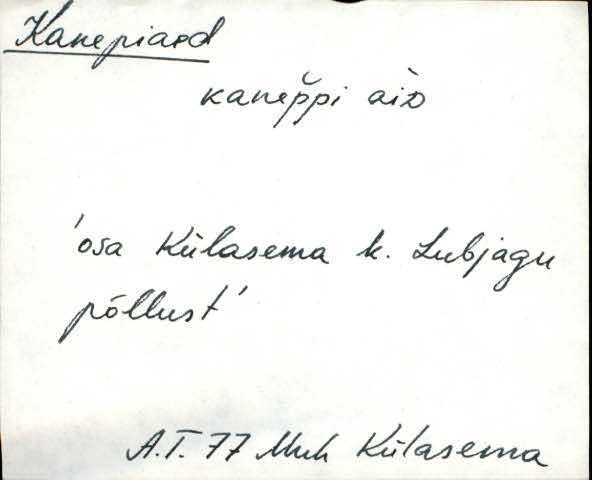 Kanepiaed
kanep̆pi aìᴅ
'osa Külasema k. Lubjagu
põllust'
A.T. 77 Muh Külasema